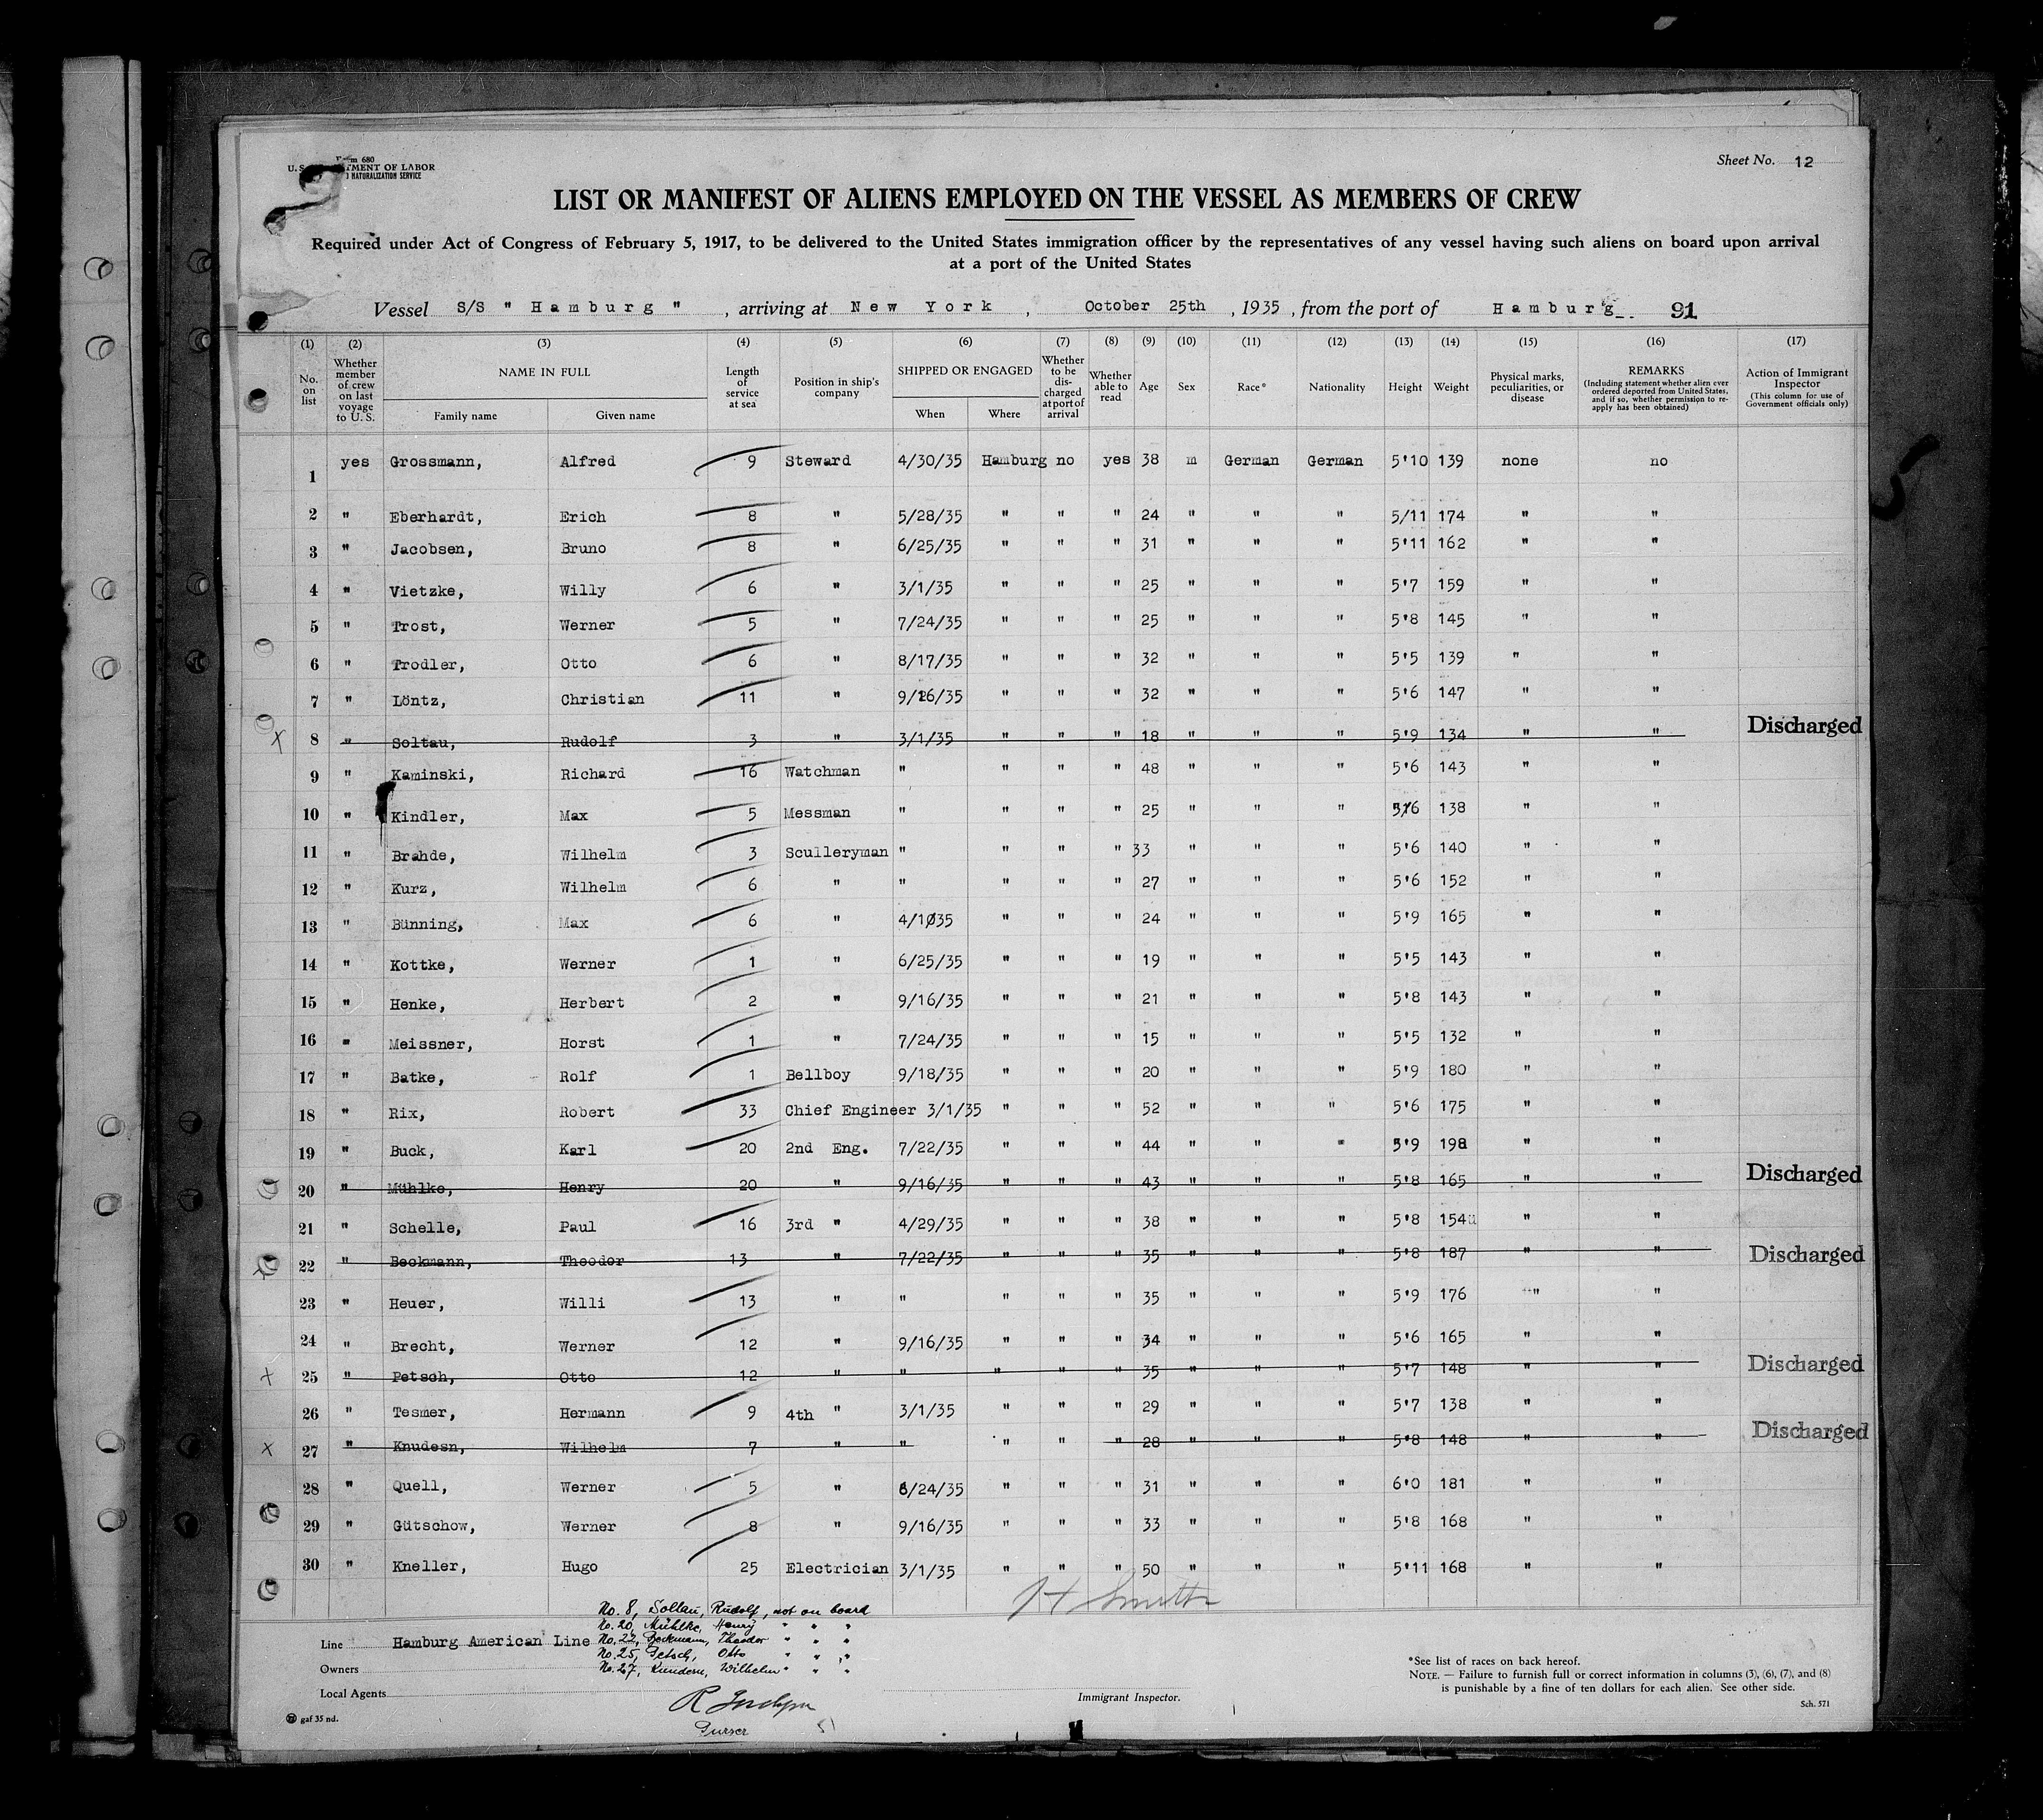 Form 680
U. S. DEPARTMENT OF LABOR
NATURALIZATION SERVICE
Sheet No. 12
LIST OR MANIFEST OF ALIENS EMPLOYED ON THE VESSEL AS MEMBERS OF CREW
Required under Act of Congress of February 5, 1917, to be delivered to the United States immigration officer by the representatives of any vessel having such aliens on board upon arrival
at a port of the United States
Vessel S/S " Hamburg ", arriving at New York, October 25th, 1935, from the port of Hamburg 91
(1) (2) (3) (4) (5) (6) (7) (8) (9) (10) (11) (12) (13) (14) (15) (16) (17)
No. on list Whether member of crew on last voyage to U. S. NAME IN FULL Family name Given name Length of service at sea Position in ship's company SHIPPED OR ENGAGED When Where Whether to be discharged at port of arrival Whether able to read Age Sex Race* Nationality Height Weight Physical marks, peculiarities, or disease REMARKS (Including statement whether alien ever ordered deported from United States, and if so, whether permission to reapply has been obtained) Action of Immigrant Inspector (This column for use of Government officials only)
1 yes Grossmann, Alfred 9 Steward 4/30/35 Hamburg no yes 38 m German German 5'10 139 none no
2 " Eberhardt, Erich 8 " 5/28/35 " " " 24 " " " 5/11 174 " "
3 " Jacobsen, Bruno 8 " 6/25/35 " " " 31 " " " 5'11 162 " "
4 " Vietzke, Willy 6 " 3/1/35 " " " 25 " " " 5'7 159 " "
5 " Trost, Werner 5 " 7/24/35 " " " 25 " " " 5'8 145 " "
6 " Trodler, Otto 6 " 8/17/35 " " " 32 " " " 5'5 139 " "
7 " Löntz, Christian 11 " 9/26/35 " " " 32 " " " 5'6 147 " "
8 " Soltau, Rudolf 3 " 3/1/35 " " " 18 " " " 5'9 134 " " Discharged
9 " Kaminski, Richard 16 Watchman " " " " 48 " " " 5'6 143 " "
10 " Kindler, Max 5 Messman " " " " 25 " " " 5'6 138 " "
11 " Brahde, Wilhelm 3 Sculleryman " " " " 33 " " " 5'6 140 " "
12 " Kurz, Wilhelm 6 " " " " " 27 " " " 5'6 152 " "
13 " Bünning, Max 6 " 4/1035 " " " 24 " " " 5'9 165 " "
14 " Kottke, Werner 1 " 6/25/35 " " " 19 " " " 5'5 143 " "
15 " Henke, Herbert 2 " 9/16/35 " " " 21 " " " 5'8 143 " "
16 " Meissner, Horst 1 " 7/24/35 " " " 15 " " " 5'5 132 " "
17 " Batke, Rolf 1 Bellboy 9/18/35 " " " 20 " " " 5'9 180 " "
18 " Rix, Robert 33 Chief Engineer 3/1/35 " " " 52 " " " 5'6 175 " "
19 " Buck, Karl 20 2nd Eng. 7/22/35 " " " 44 " " " 5'9 198 " "
20 " Mühlke, Henry 20 " 9/16/35 " " " 43 " " " 5'8 165 " " Discharged
21 " Schelle, Paul 16 3rd " 4/29/35 " " " 38 " " " 5'8 154 " "
22 " Beckmann, Theodor 13 " 7/22/35 " " " 35 " " " 5'8 187 " " Discharged
23 " Heuer, Willi 13 " " " " " 35 " " " 5'9 176 " "
24 " Brecht, Werner 12 " 9/16/35 " " " 34 " " " 5'6 165 " "
25 " Petsch, Otto 12 " " " " " 35 " " " 5'7 148 " " Discharged
26 " Tesmer, Hermann 9 4th " 3/1/35 " " " 29 " " " 5'7 138 " "
27 " Knudesn, Wilhelm 7 " " " " " 28 " " " 5'8 148 " " Discharged
28 " Quell, Werner 5 " 6/24/35 " " " 31 " " " 6'0 181 " "
29 " Gütschow, Werner 8 " 9/16/35 " " " 33 " " " 5'8 168 " "
30 " Kneller, Hugo 25 Electrician 3/1/35 " " " 50 " " " 5'11 168 " "
H Smith
No. 8, Soltau, Rudolf, not on board
No. 20, Mühlke, Henry " " "
No. 22, Beckmann, Theodor " " "
No. 25, Petsch, Otto " " "
No. 27, Kundesn, Wilhelm " " "
Line Hamburg American Line
Owners
Local Agents
R
Purser
Immigrant Inspector.
*See list of races on back hereof.
NOTE. — Failure to furnish full or correct information in columns (3), (6), (7), and (8)
is punishable by a fine of ten dollars for each alien. See other side.
gaf 35 nd.
Sch. 571